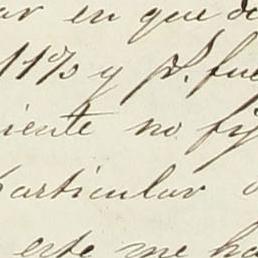 ar en que d
11% y p.r fue
iente no fij
particular
este me ha